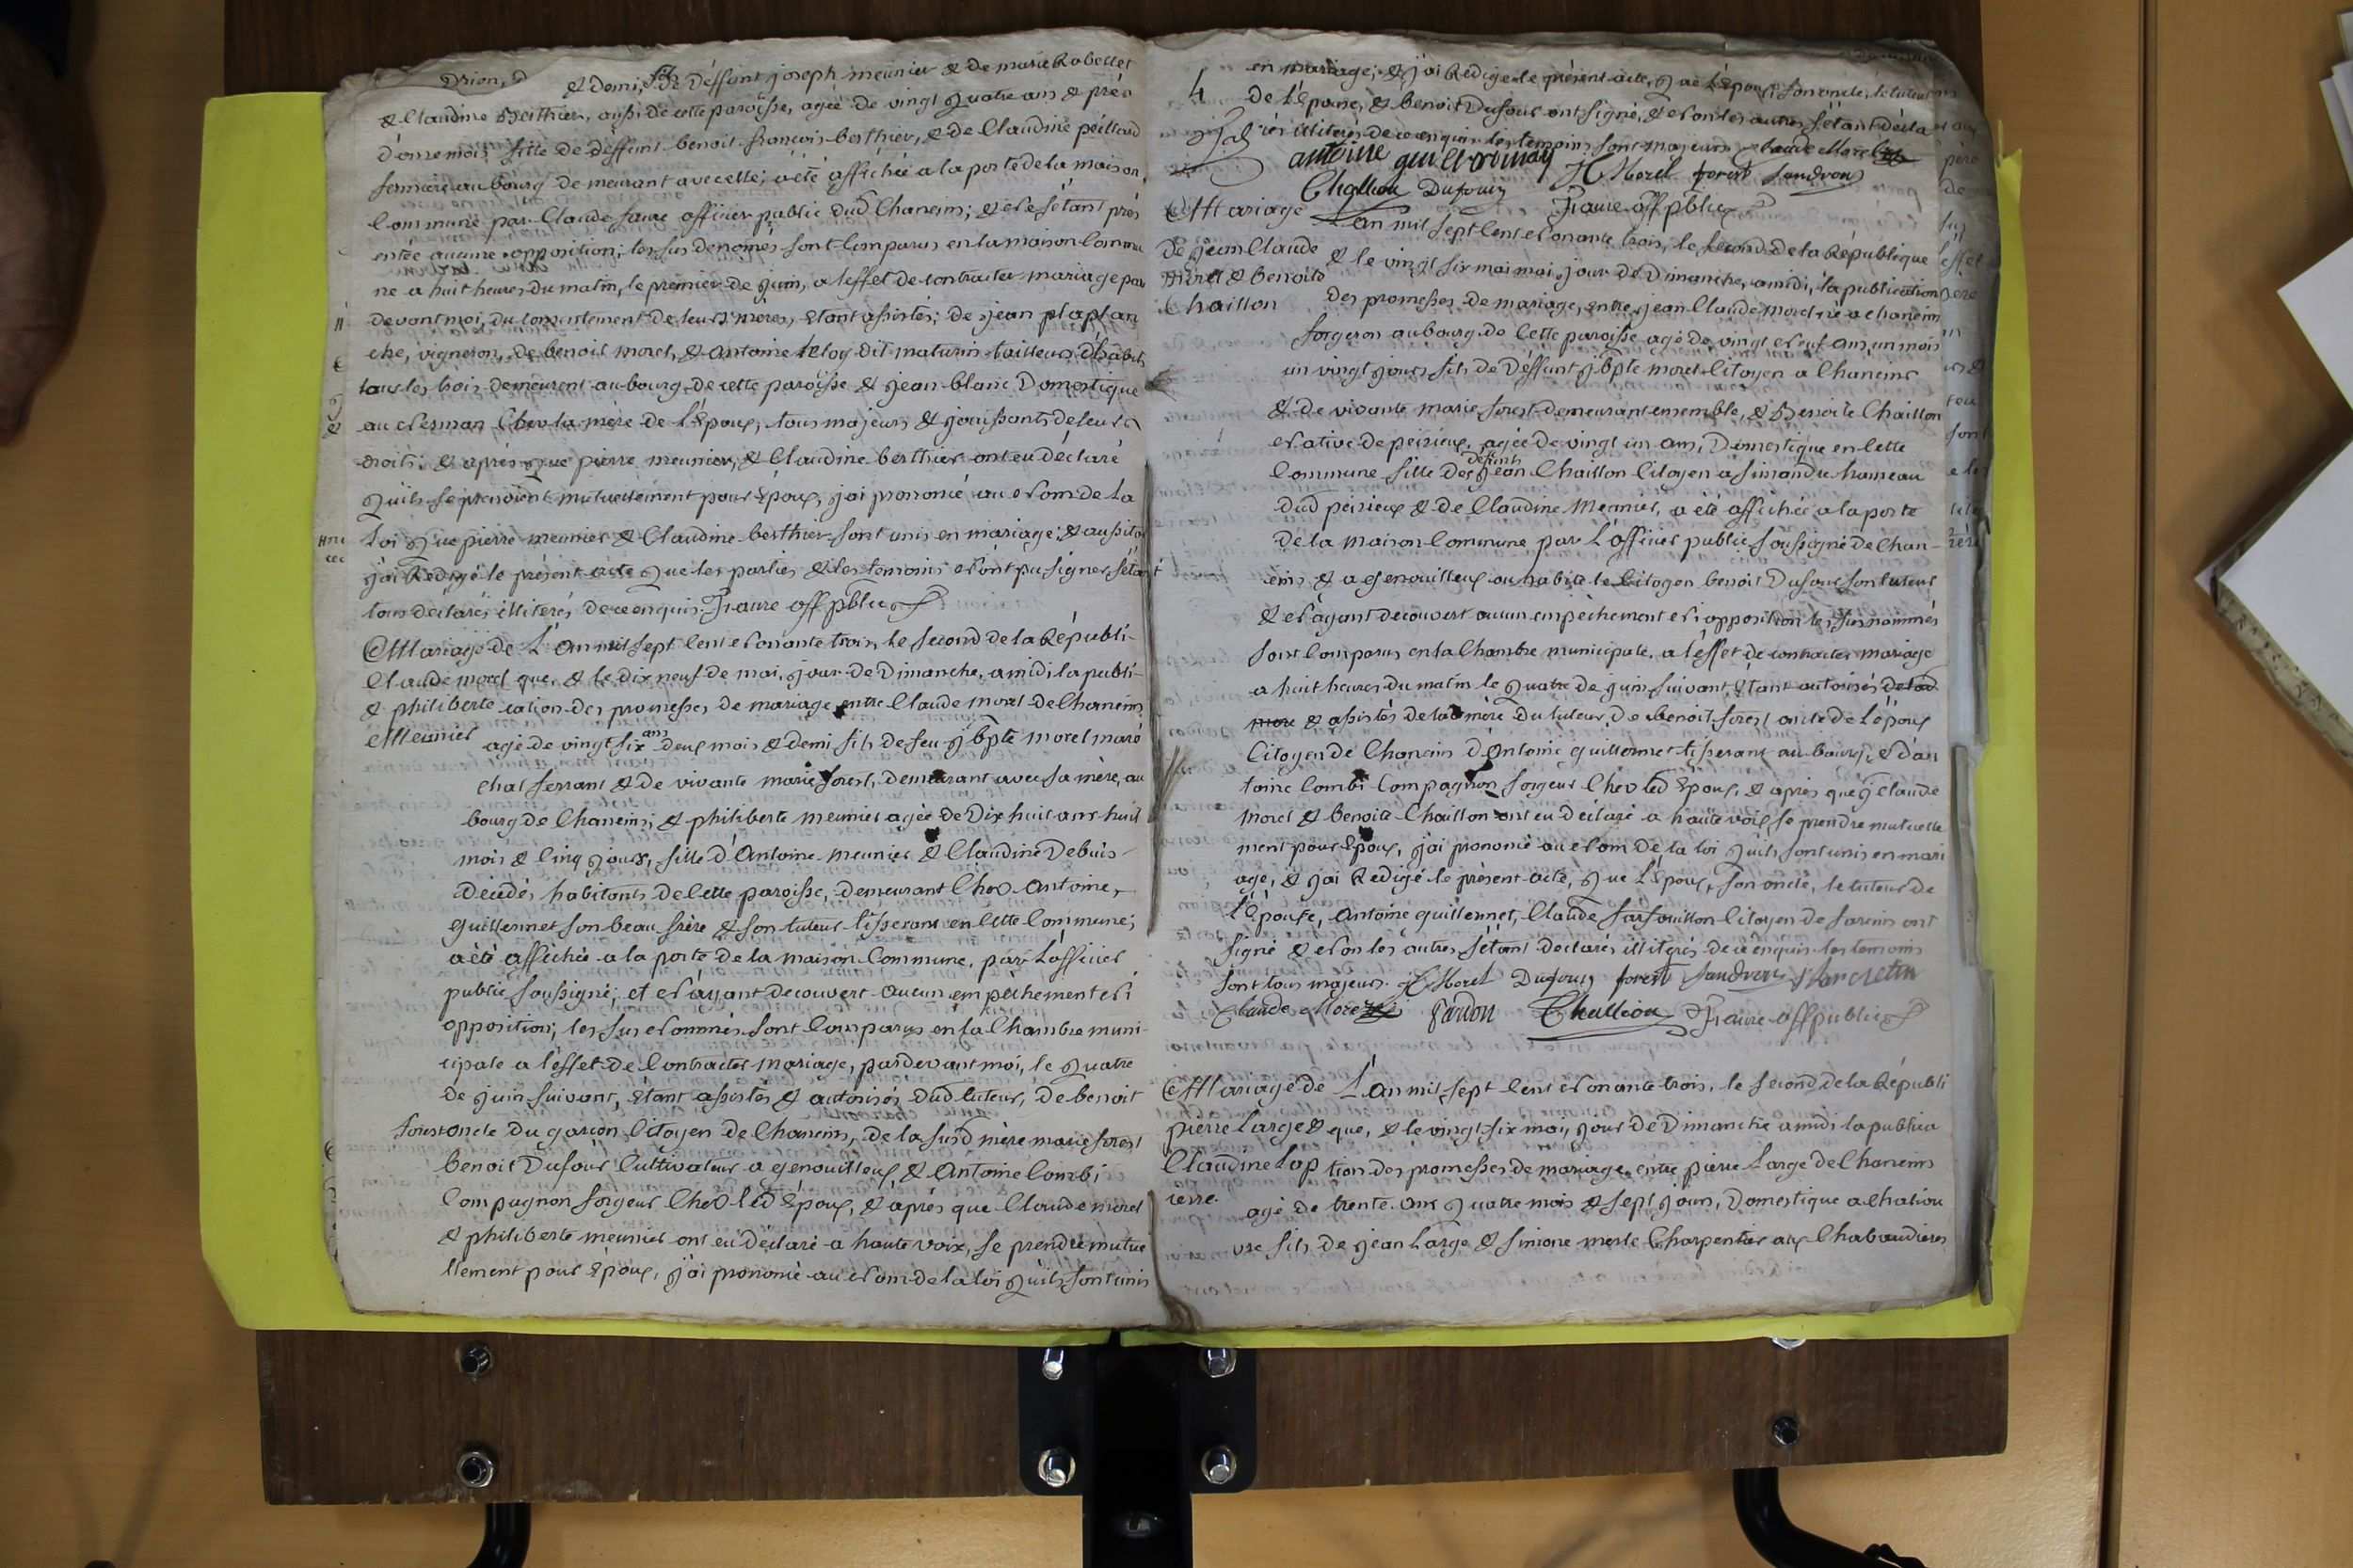 et demi, fils de déffunt joseph meunier & de marie Robellet
& Claudine Berthier, aussi de cette paroisse, agée de vingt quatre ans & près
d'onze mois fille de déffunt benoit françois berthier, & de Claudine péillard
fermière au bourg demeurant avec elle; a été affichée a la porte de la maison
Commune par Claude faure officier public dud Chaneins; & ne s'étant prés
entée aucune opposition; les sus denomés sont Comparus en la maison Commu
ne a huit heures du matin, le premier de juin, a l'effet de contracter mariage par
devant moi, du consentement de leurs mères, étant assistés; de jean plaplan
che, vigneron, de benoit morel, & antoine teloy dit maturin tailleurs d'habits
tous les trois demeurent au bourg de cette paroisse & jean blanc Domestique
au Chez la mère de l'Epoux, tous majeurs & jouissants de leurs
droits; & après que pierre meunier, & Claudine berthier ont eu déclaré
qu'ils se prenoient mutuellement pour Epoux, j'ai prononcé au nom de la
Loi que pierre meunier & Claudine berthier sont unis en mariage; & aussitot
j'ai Redigé le présent acte que les parties & les temoins n'ont pu signer s'étant
tous declarés illiterés de ce enquis. Faure off pblic
Mariage de L'an mil sept cent nonante trois, le second de la Républi-
Claude morel que, & le dix neuf de mai, jour de Dimanche, a midi la publi-
& philiberte cation des promesses de mariage entre Claude morel de Chaneins
Meunier agé de vingt six ans deux mois & demi fils de feu j bpte morel maré
chal ferrant & de vivante marie forest, demeurant avec sa mère, au
bourg de Chaneins; & philiberte meunier agée de Dix huit ans huit
mois & cinq jours, fille d'Antoine meunier & Claudine Debuis
décédés habitants de cette paroisse, demeurant Chez Antoine
guillermet son beau frère & son tuteur tisserant en cette Commune;
a été affichée a la porte de la maison Commune, par L'officier
public soussigné; et n'ayant decouvert aucun empêchement ni
opposition; les sus nommés sont Comparus en la Chambre muni-
cipale a l'effet de Contracter mariage, pardevant moi, le quatre
de juin suivant, étant assistés & autorisés dud tuteur, de benoit
forest oncle du garçon Citoyen de Chaneins, de la susd mère marie forest
benoit Dufour Cultivateur a genouilleux, & Antoine Combi
Compagnon forgeur Chez led Epoux, & après que Claude morel
& philiberte meunier ont eu déclaré a haute voix, se prendre mutue
llement pour Epoux, j'ai prononcé au nom de la loi qu'ils sont unis
4
en mariage; & j'ai Redigé le présent acte, que L'Epoux, son oncle, le tuteur
de L'Epouse, & benoit Dufour ont signé, & non les autres s'étant décla
rés illiterés de ce enquis les temoins sont majeurs Claude Morel
antoine J C Morel forest Sandron
Challion Dufour Faure off pblic
Mariage L'an mil sept cent nonante trois, le second de la République
de jean Claude & le vingt six mai jour de Dimanche, a midi, la publication
morel & benoite des promesses de mariage, entre jean Claude morel né a chaneins
Chaillon forgeron au bourg de Cette paroisse agé de vingt neuf ans, un mois
un vingt jours fils de Déffunt j bpte morel Citoyen a Chaneins
& de vivante marie forest demeurant ensemble, & Benoite Chaillon
native de peizieux, agée de vingt un ans, Domestique en Cette
Commune fille des deffunts jean Chaillon Citoyen a simandre hameau
dud peizieux & de Claudine Meunier, a été affichée a la porte
de la maison Commune par L'officier public soussigné de Chan-
eins & a genouilleux ou habite le Citoyen benoit Dufour son tuteur
& n'ayant decouvert aucun empêchement ni opposition les sus nommés
sont Comparus en la Chambre municipale, a l'effet de contracter mariage
a huit heures du matin le quatre de juin suivant, étant autorisés de lad
mere & assistés de lad mère du tuteur, de benoit forest oncle de L'époux
Citoyen de Chaneins d'Antoine guillermet tisserant au bourg, & d'an
toine Combi Compagnon forgeur Chez led Epoux, & après que j Claude
morel & benoite Chaillon ont eu déclaré a haute voix se prendre mutuelle
ment pour Epoux, j'ai prononcé au nom de la loi qu'ils sont unis en mari
age, & j'ai Redigé le présent acte, que L'Epoux, son oncle, le tuteur de
L'Epouse, antoine guillermet, Claude farfouillon Citoyen de ont
signé & non les autres s'étant declarés illiterés de ce enquis les temoins
sont tous majeurs. J C Morel Dufour forest Sandron
Claude Morel Challion Faure off public
Mariage de L'an mil sept cent nonante trois, le second de la Républi
pierre Large & que, & le vingt six mai, jour de Dimanche a midi la publica
Claudine Lap tion des promesses de mariage entre pierre Large de Chaneins
ierre. agé de trente ans quatre mois & sept jours, Domestique a
fils de jean Large & simone merle Charpentier aux Chabaudieres